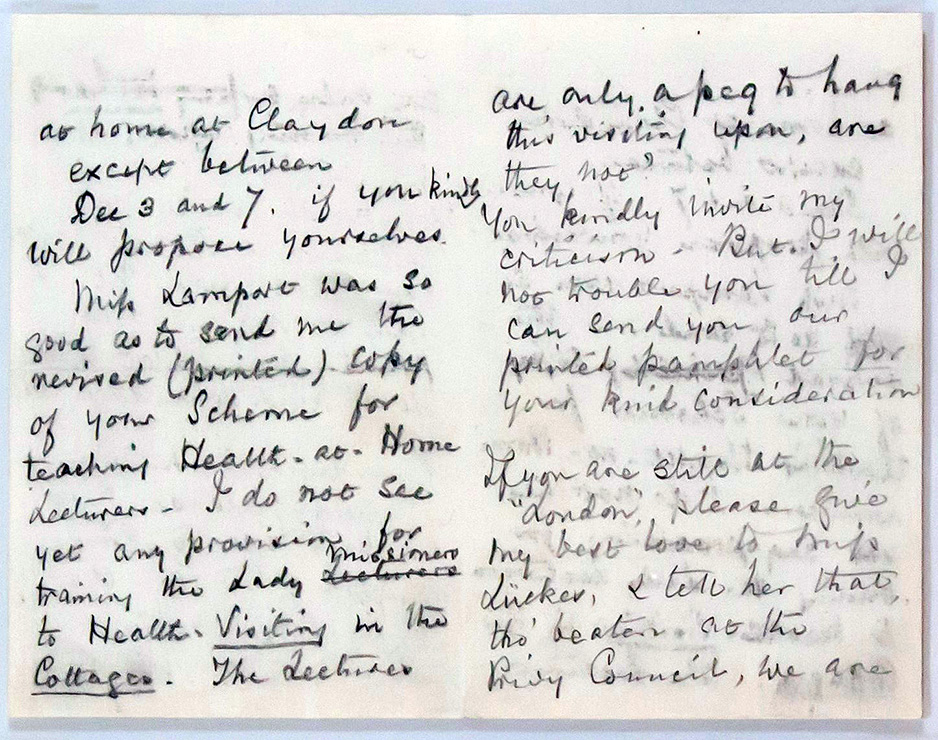 at home at Claydon
except between
Dec 3 and 7. if you kindly
will propose yourselves.
Miss Lamport was so
good as to send me the
revised (printed) copy
of your Scheme for
teaching Health-at-Home
Lecturers - I do not see
yet any provision for
Missioners
training the Lady Lecturers
to Health-Visiting in the
Cottages. The Lectures
are only a peg to hang
this visiting upon, are
they not?
You kindly invite my
criticism - But I will
not trouble you till I
can send you our
printed pamphlet for
your kind consideration
If you are still at the
"London", please give
my best love to Miss
Lückes, & tell her that,
tho' beaten at the
Privy Council, we are